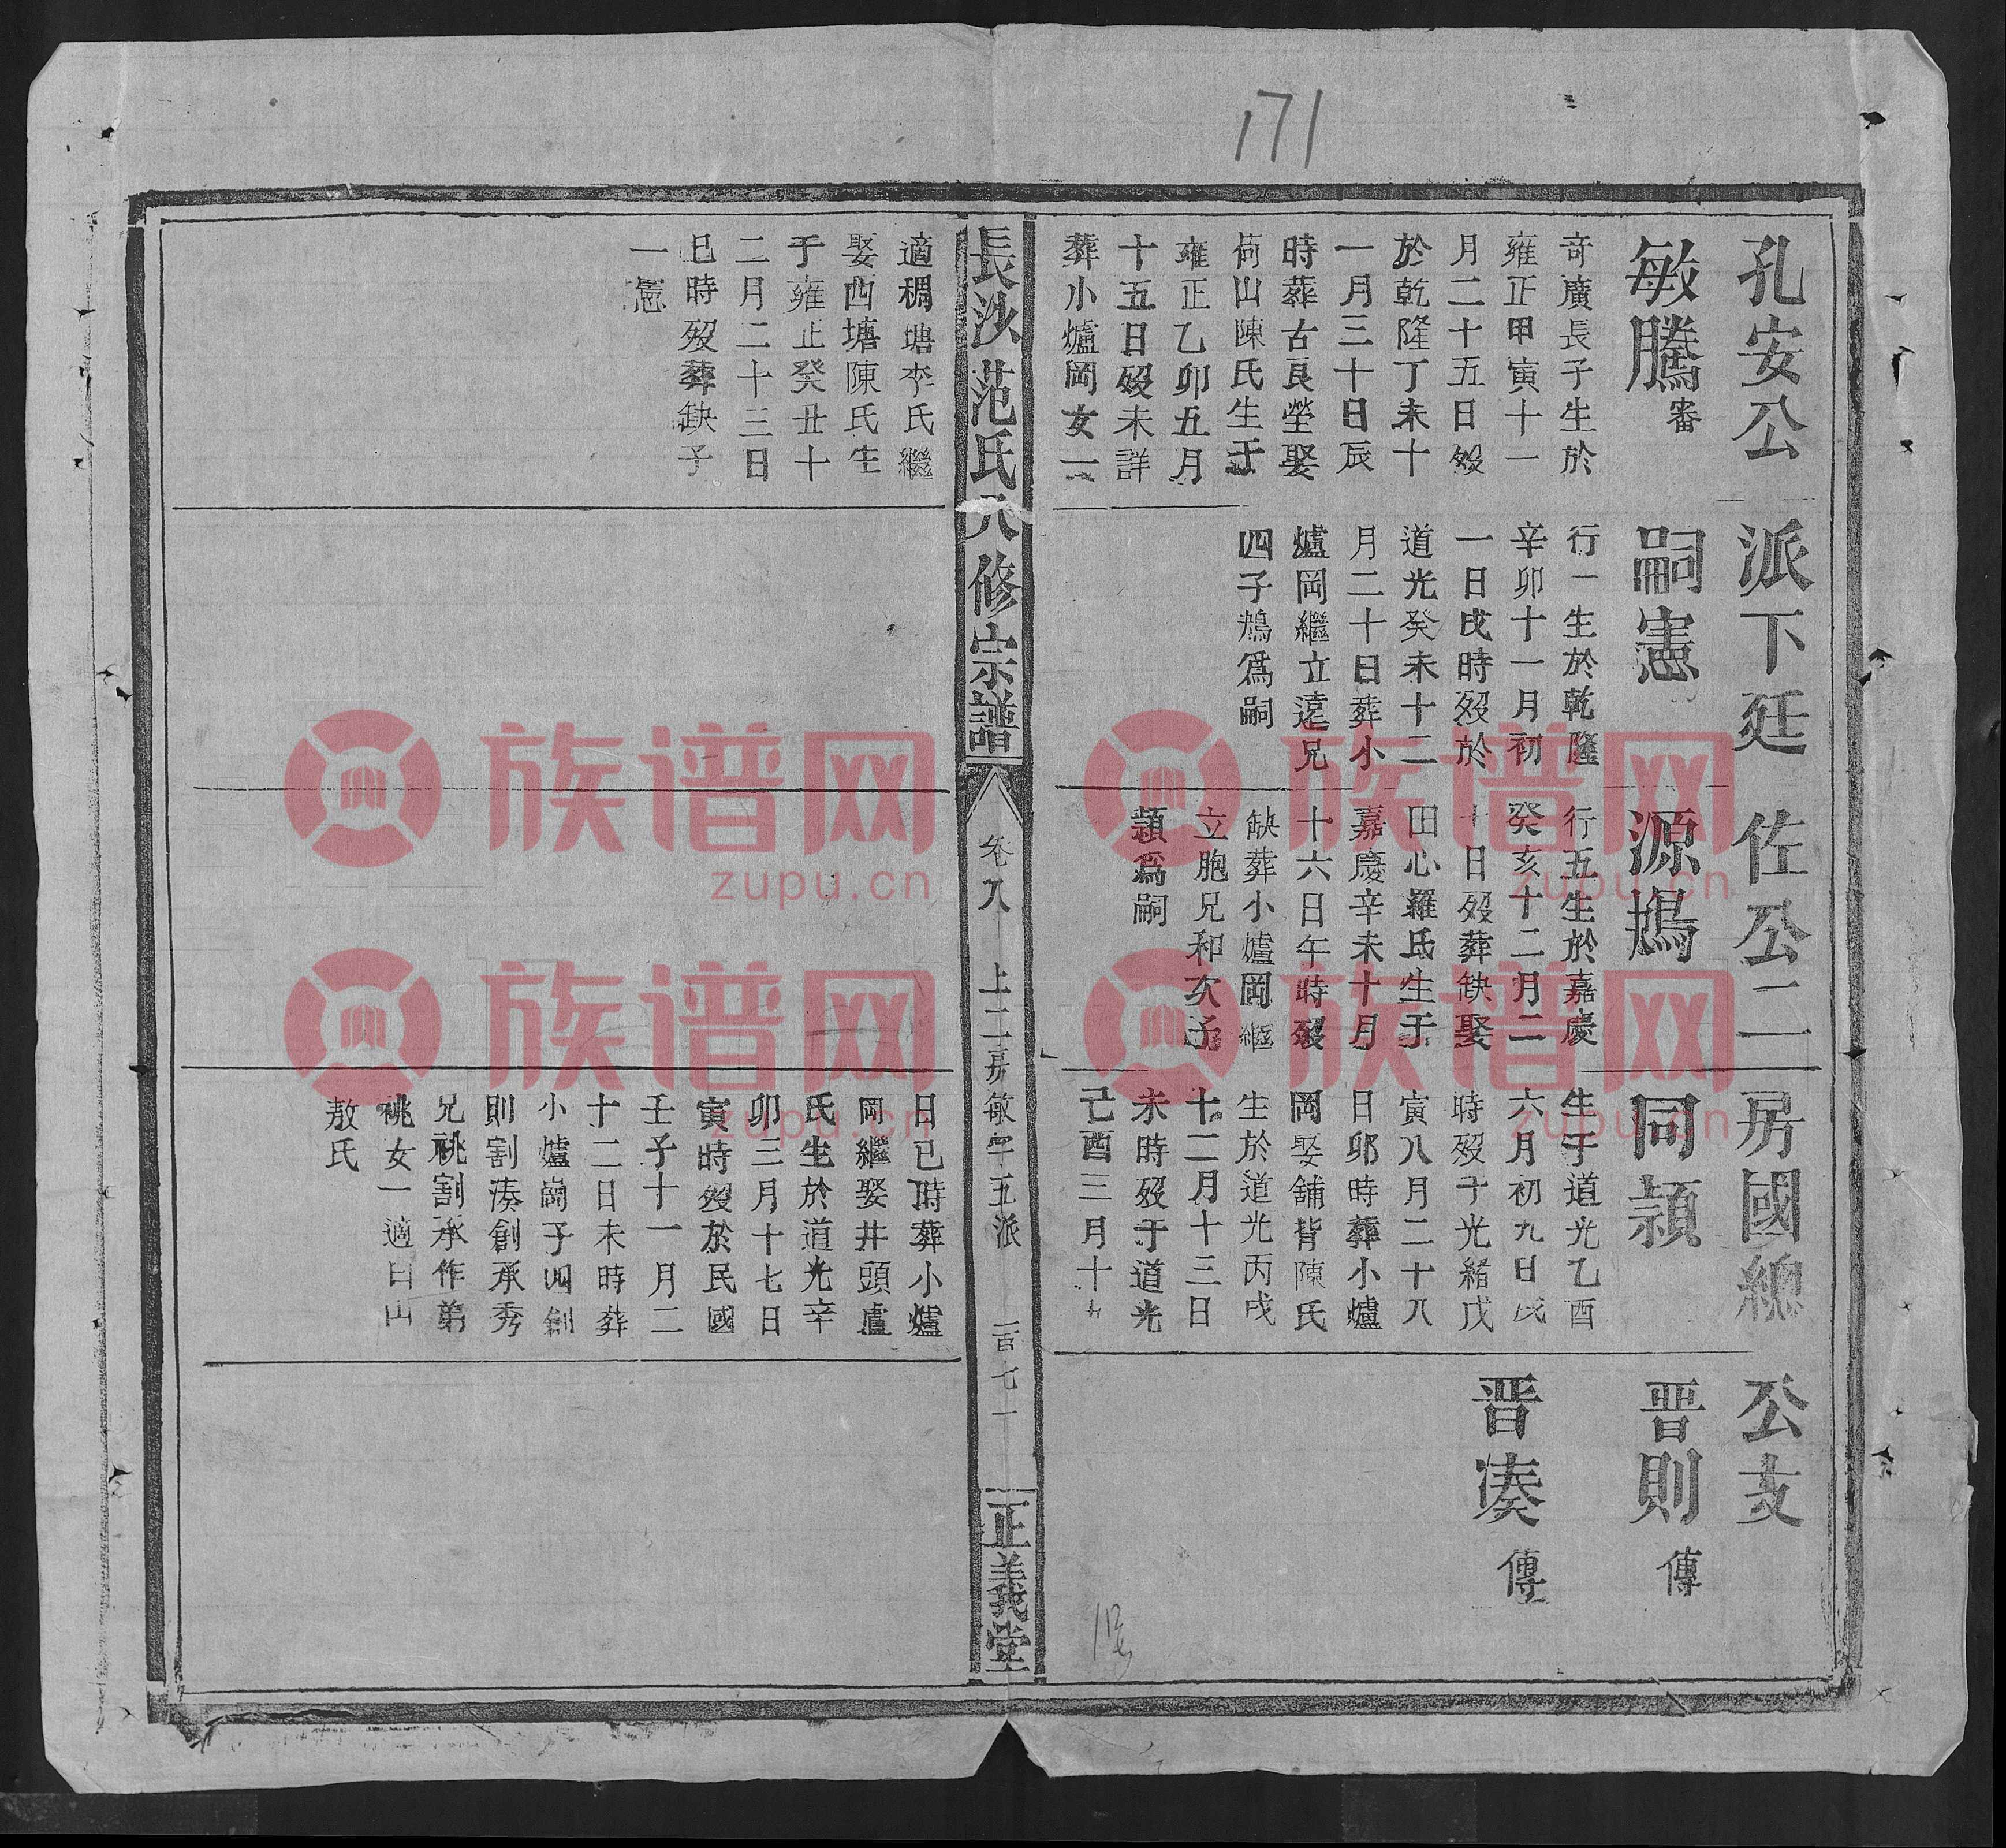 171
孔安公派下廷佐公二房國總公支
敏騰審
奇廣長子生於
雍正甲寅十一
月二十五日歿
於乾隆丁未十
一月三十日辰
時葬古良塋娶
荷山陳氏生于
雍正乙卯五月
十五日歿未詳
葬小爐岡女一
適稠塘李氏繼
娶西塘陳氏生
于雍正癸丑十
二月二十三日
巳時歿葬缺子
一憲
嗣憲
行一生於乾隆
辛卯十一月初
一日戌時歿於
道光癸未十二
月二十日葬小
爐岡繼立遠兄
四子鴆爲嗣
源鴆
行五生於嘉慶
癸亥十二月二
十日歿葬缺娶
田心羅氏生于
嘉慶辛未十月
十六日午時歿
缺葬小爐岡繼
立胞兄和次子
頴爲嗣
同頴
生于道光乙酉
六月初九日戌
時歿于光緒戊
寅八月二十八
日卯時葬小爐
岡娶舖背陳氏
生於道光丙戌
十二月十三日
未時歿于道光
己酉三月十九
日巳時葬小爐
岡繼娶井頭盧
氏生於道光辛
卯三月十七日
寅時歿於民國
壬子十一月二
十二日未時葬
小爐崗子四創
則割湊創承秀
兄祧割承作弟
祧女一適白山
敖氏
晋則 傳
晋湊 傳
長沙范氏八修宗譜
卷八 上二房敏字五派 一百七一
正義堂
族谱网
zupu.cn
族谱网
zupu.cn
族谱网
zupu.cn
族谱网
zupu.cn